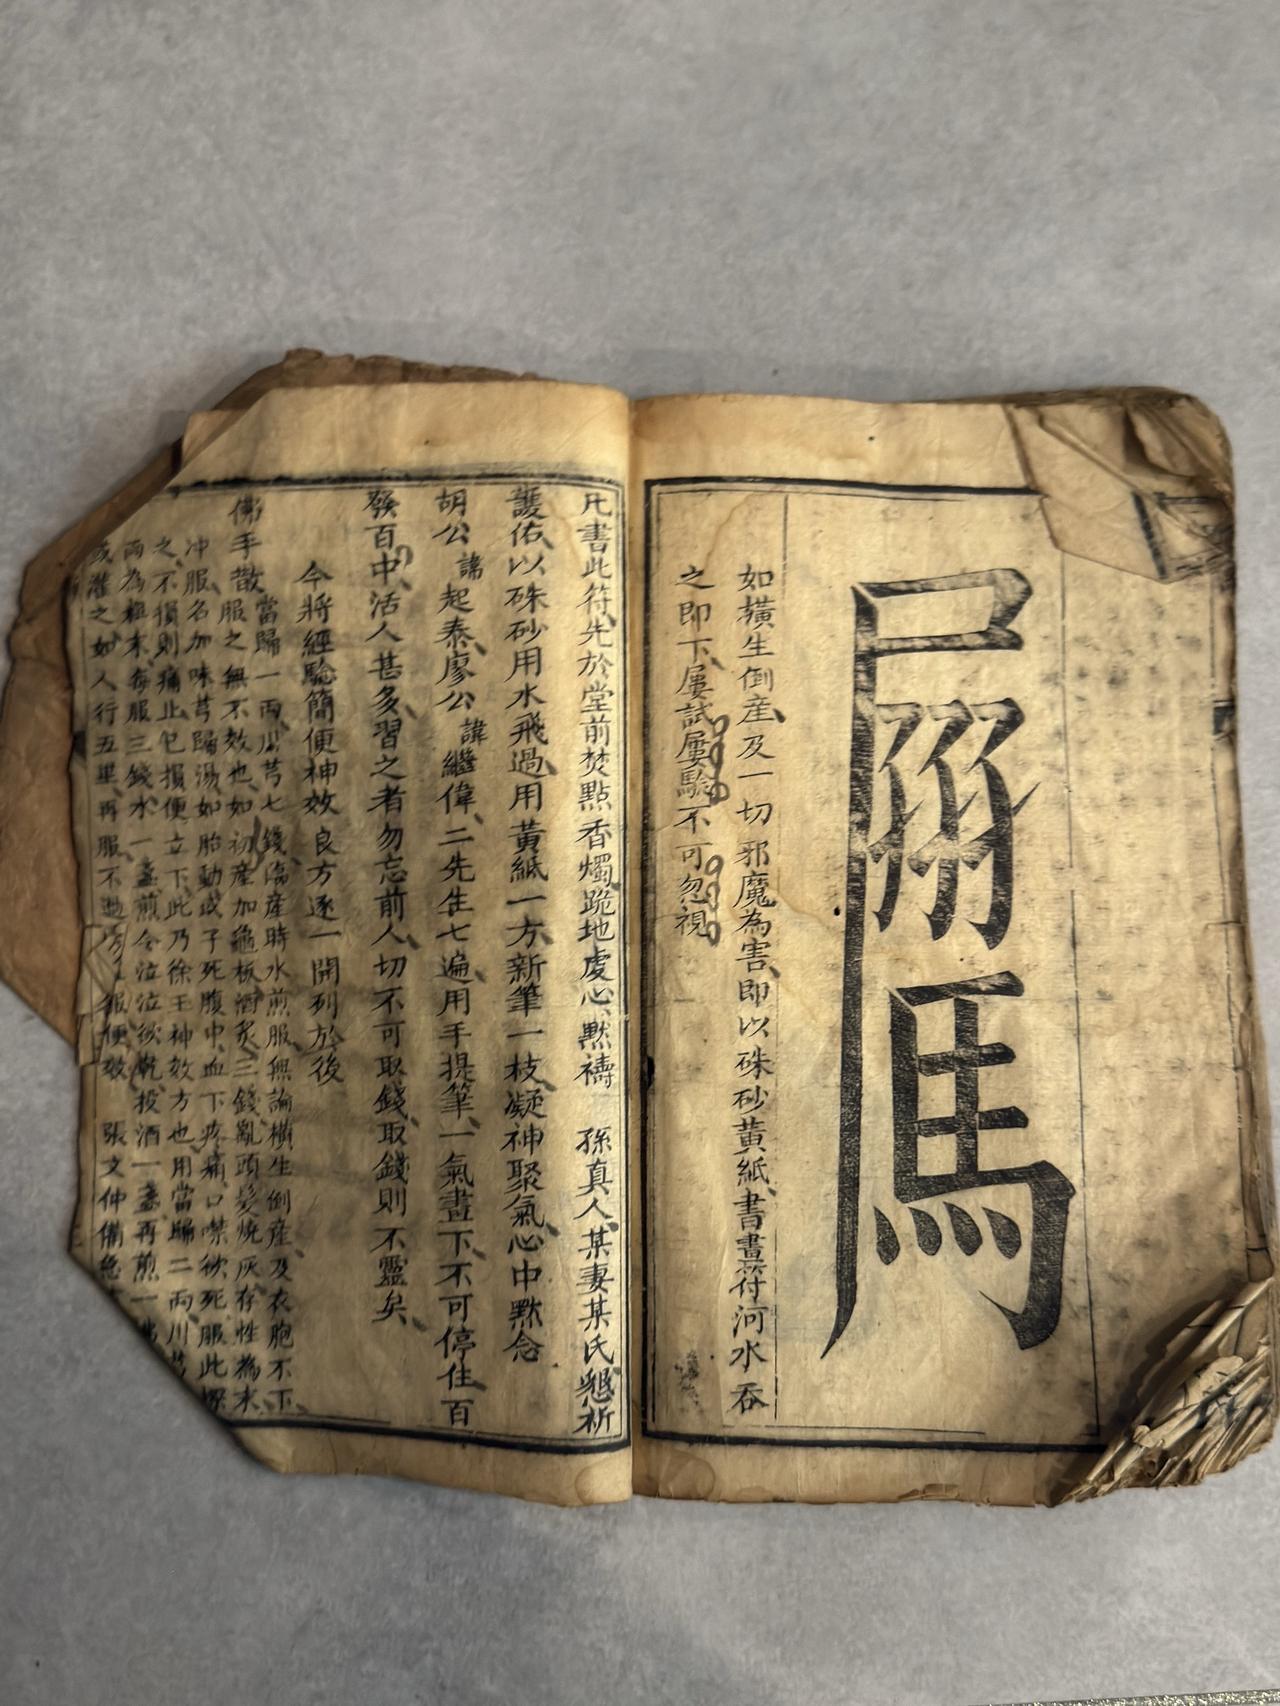 如橫生倒産及一切邪魔為害即以硃砂黄紙書畫符河水吞
之即下屢試屢驗不可忽視
凡書此符先於堂前焚點香燭跪地虔心默禱 孫真人某妻某氏懇祈
護佑以硃砂用水飛過用黄紙一方新筆一枝凝神聚氣心中默念
胡公諱起泰廖公諱繼偉二先生七遍用手提筆一氣畫下不可停住百
發百中活人甚多習之者勿忘前人切不可取錢取錢則不靈矣
今將經驗簡便神效良方逐一開列於後
佛手散 當歸一兩川芎七錢臨産時水煎服無論橫生倒産及衣胞不下
服之無不效也如初産加龜板酒炙三錢亂頭髮燒灰存性為末
冲服名加味芎歸湯如胎動或子死腹中血下疼痛口噤欲死服此探
之不損則痛止已損便立下此乃徐王神效方也用當歸二兩川芎
兩為粗末每服三錢水一盞煎令泣泣欲乾投酒一盞再煎一沸
或灌之如人行五里再服不過 服便效 張文仲備急